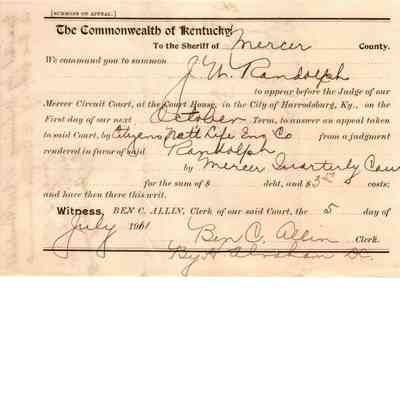 [SUMMONS ON APPEAL.]
The Commonwealth of Kentucky
To the Sheriff of Mercer County.
We command you to summon
J. W. Randolph
to appear before the Judge of our
Mercer Circuit Court, at the Court House, in the City of Harrodsburg, Ky., on the
First day of our next October Term, to answer an appeal taken
to said Court, by Citizens Natl Life Co from a judgment
rendered in favor of said Randolph
by Mercer Quarterly Cou
for the sum of $ debt, and $3 costs;
and have then there this writ.
Witness, BEN C. ALLIN, Clerk of our said Court, the 5 day of
July 190 Ben C. Allin Clerk.
By Abraham D.C.